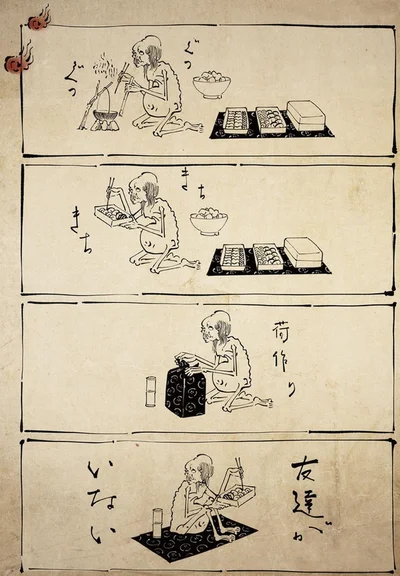 ぐつ
ぐつ
きち
きち
荷作り
友達が
いない